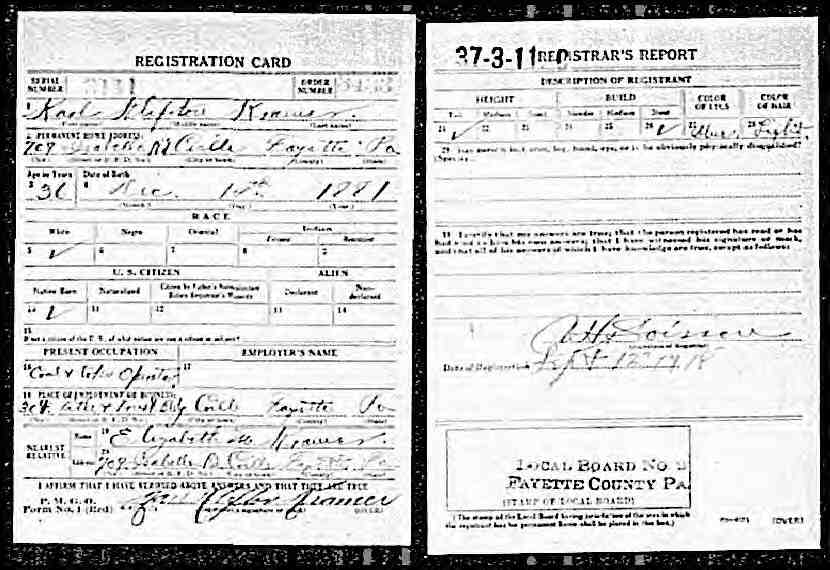 REGISTRATION CARD
SERIAL NUMBER
ORDER NUMBER
1 Karl Clifton Kramer.
(First name) (Middle name) (Last name)
2 PERMANENT HOME ADDRESS:
709 Isabella Rd C'ville Fayette Pa
(No.) (Street or R. F. D. No.) (City or town) (County) (State)
Age in Years Date of Birth
3 36 4 Dec. 1881
(Month) (Day) (Year)
RACE
White Negro Oriental Indian
Citizen Noncitizen
5 ✓ 6 7 8 9
U. S. CITIZEN ALIEN
Native Born Naturalized Citizen by Father's Naturalization Before Registrant's Majority Declarant Non-declarant
10 ✓ 11 12 13 14
15
If not a citizen of the U. S., of what nation are you a citizen or subject?
PRESENT OCCUPATION EMPLOYER'S NAME
16 Coal & Coke Operator 17
18 PLACE OF EMPLOYMENT OR BUSINESS:
C'ville Fayette Pa
(No.) (Street or R. F. D. No.) (City or town) (County) (State)
NEAREST RELATIVE
Name 19 Elizabeth Kramer.
Address 20 709 Isabella Rd C'ville Fayette Pa
(No.) (Street or R. F. D. No.) (City or town) (County) (State)
I AFFIRM THAT I HAVE VERIFIED ABOVE ANSWERS AND THAT THEY ARE TRUE
P. M. G. O.
Form No. 1 (Red) Karl Clifton Kramer
(OVER)
37-3-11 REGISTRAR'S REPORT
DESCRIPTION OF REGISTRANT
HEIGHT BUILD COLOR OF EYES COLOR OF HAIR
Tall Medium Short Slender Medium Stout
21 ✓ 22 23 24 25 26 ✓ 27 Blue 28 Light
29 Has person lost arm, leg, hand, eye, or is he obviously physically disqualified?
(Specify.)
30 I certify that my answers are true; that the person registered has read or has
had read to him his own answers; that I have witnessed his signature or mark,
and that all of his answers of which I have knowledge are true, except as follows:
(Signature of Registrar)
Date of Registration Sept 12 1918
LOCAL BOARD NO
FAYETTE COUNTY PA.
(STAMP OF LOCAL BOARD)
(The stamp of the Local Board having jurisdiction of the area in which
the registrant has his permanent home shall be placed in this box.)
(OVER)